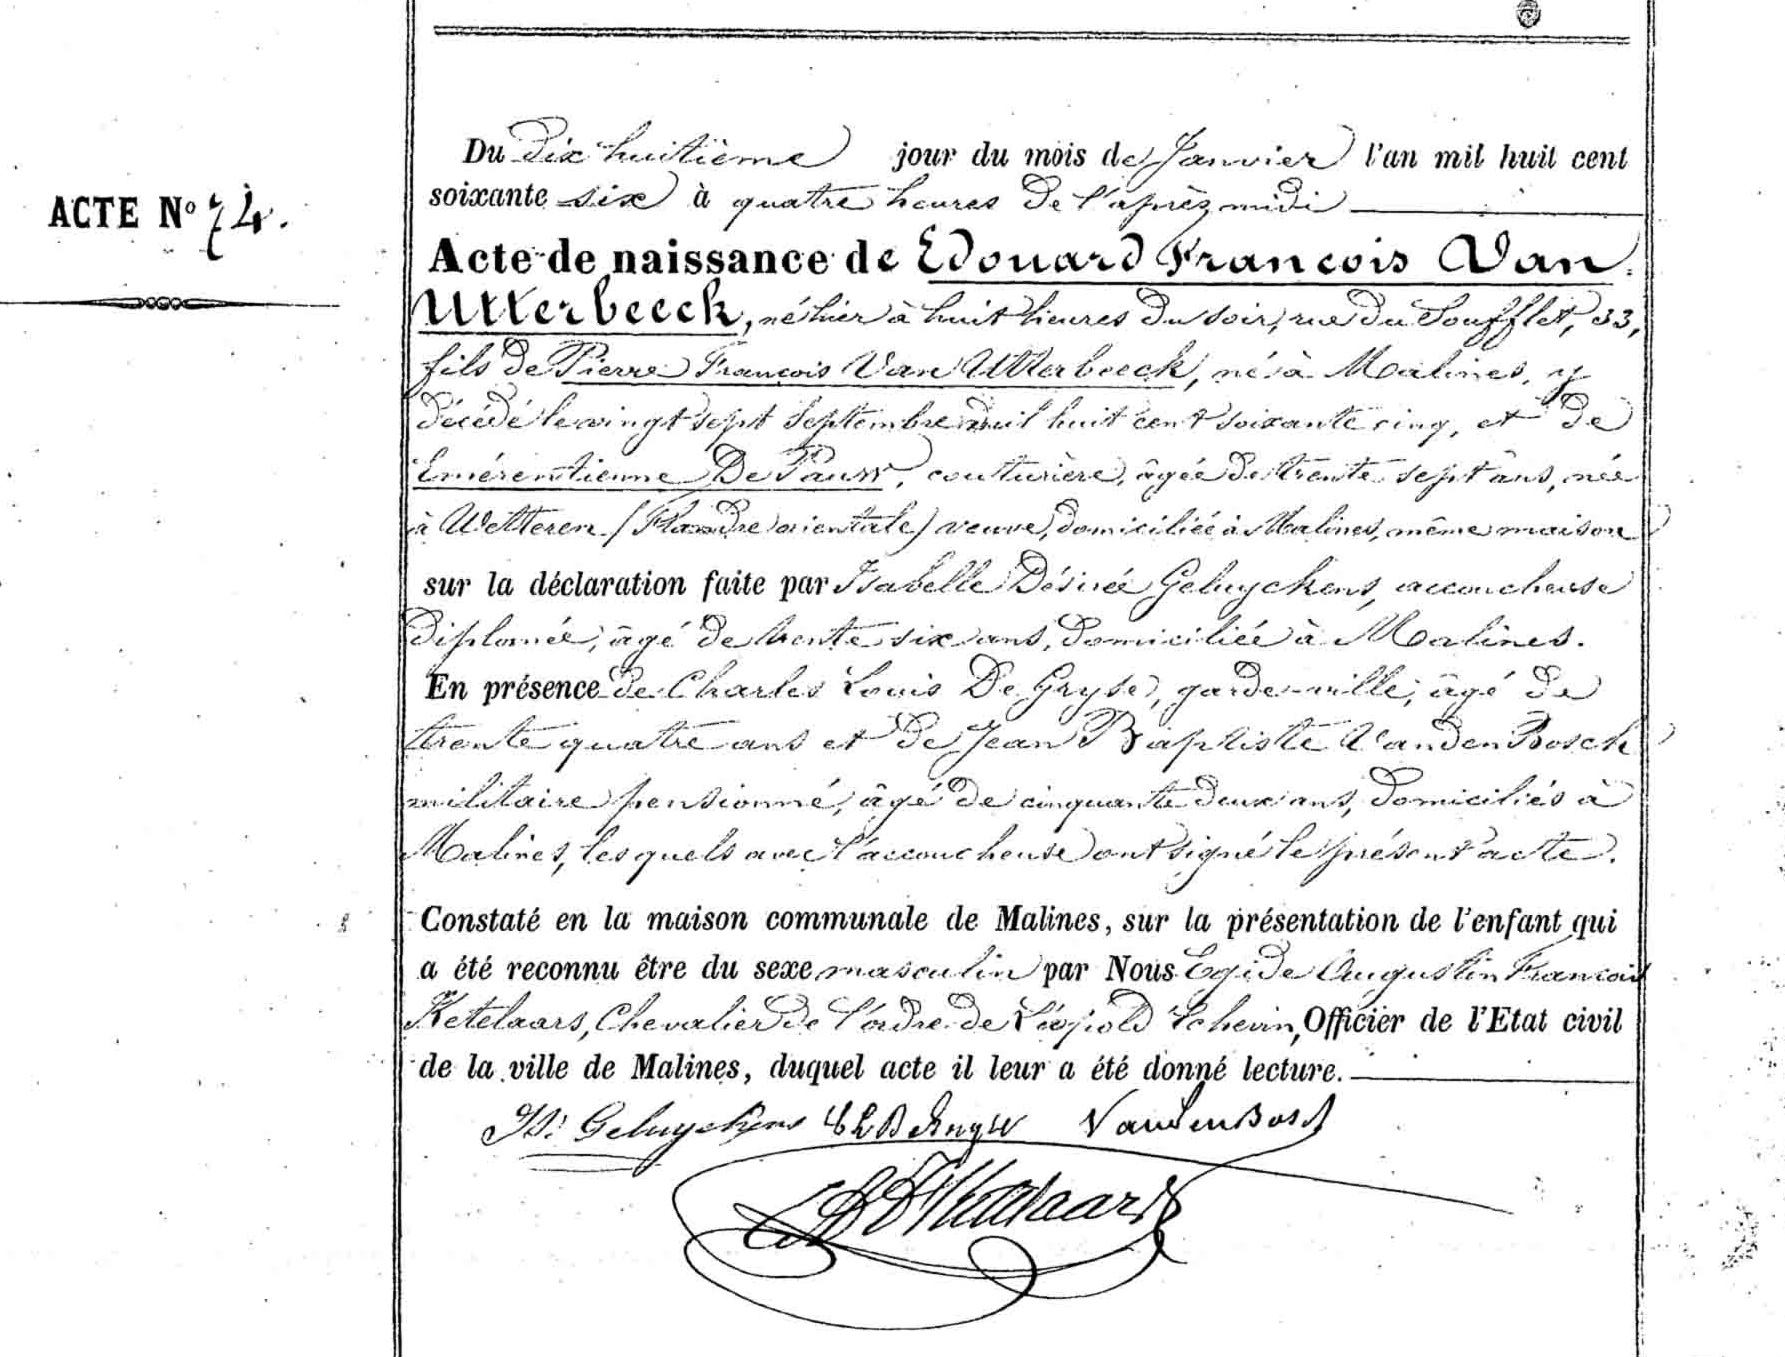 ACTE N° 74.
Du dix huitième jour du mois de Janvier l'an mil huit cent
soixante six à quatre heures de l'après midi
Acte de naissance de Edouard François Van
Utterbeeck, né hier à huit heures du soir, rue du Soufflet, 33,
fils de Pierre François Van Utterbeeck, né à Malines, y
décédé le vingt sept Septembre mil huit cent soixante cinq, et de
Emérentienne De Pauw, couturière, âgée de trente sept ans, née
à Wetteren (Flandre orientale) veuve, domiciliée à Malines, même maison
sur la déclaration faite par Isabelle Désirée Geluyckens, accoucheuse
diplomée, âgé de trente six ans, domiciliée à Malines.
En présence de Charles Louis De Gryse, garde-ville, âgé de
trente quatre ans et de Jean Baptiste Vanden Bosch
militaire pensionné, âgé de cinquante deux ans, domiciliés à
Malines, les quels avec l'accoucheuse ont signé le présent acte.
Constaté en la maison communale de Malines, sur la présentation de l'enfant qui
a été reconnu être du sexe masculin par Nous Egide Augustin François
Ketelaars, Chevalier de l'ordre de Léopold Echevin, Officier de l'Etat civil
de la ville de Malines, duquel acte il leur a été donné lecture.
Is: Geluyckens VandenBosch